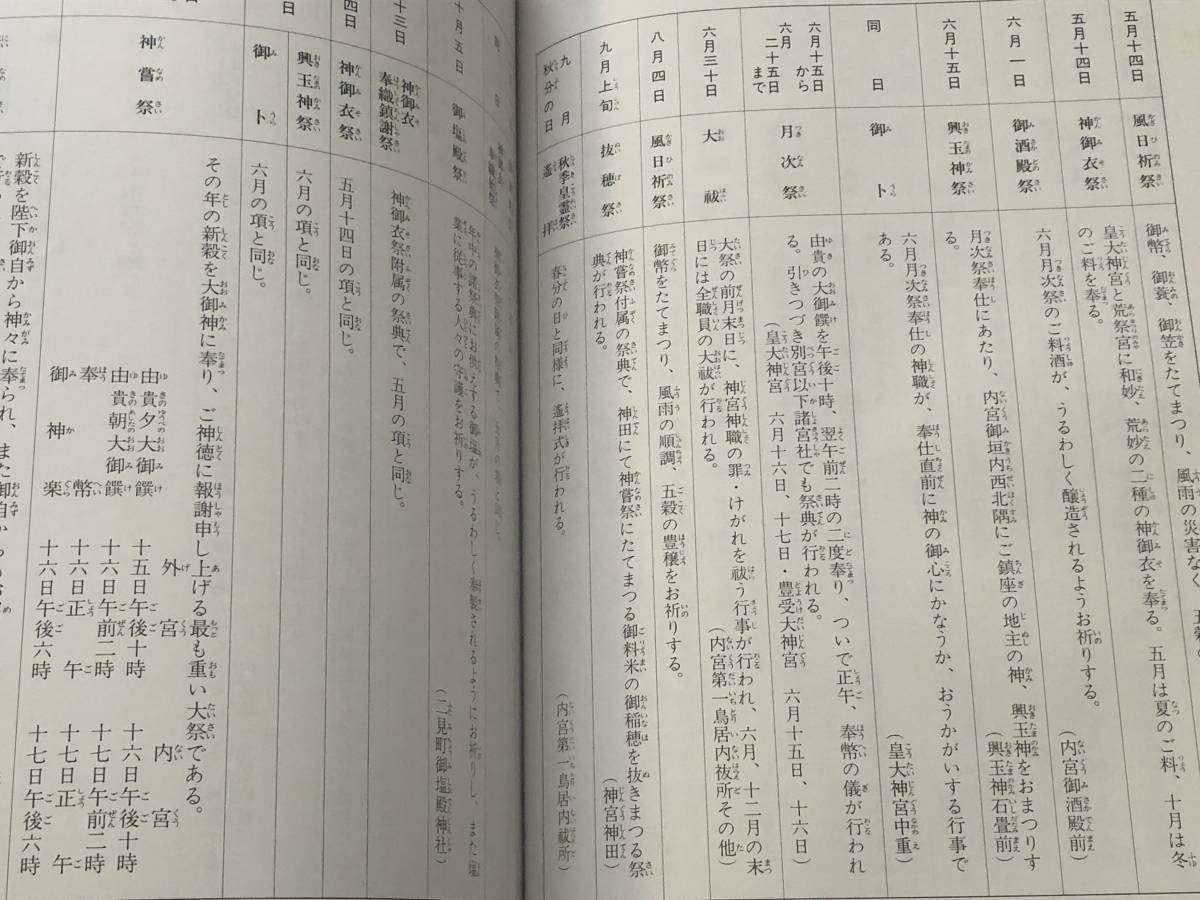 五月十四日
風日祈祭
御幣、御蓑、御笠をたてまつり、風雨の災害なく、五穀の
五月十四日
神御衣祭
皇大神宮と荒祭宮に和妙、荒妙の二種の神御衣を奉る。五月は夏のご料、十月は冬
のご料を奉る。
六月一日
御酒殿祭
六月月次祭のご料酒が、うるわしく醸造されるようお祈りする。
(内宮御酒殿前)
六月十五日
興玉神祭
月次祭奉仕にあたり、内宮御垣内西北隅にご鎮座の地主の神、興玉神をおまつりす
る。
(興玉神石畳前)
同日
御卜
六月月次祭奉仕の神職が、奉仕直前に神の御心にかなうか、おうかがいする行事で
ある。
(皇大神宮中重)
六月十五日
から
六月二十五日
まで
月次祭
由貴の大御饌を午後十時、翌午前二時の二度奉り、ついで正午、奉幣の儀が行われ
る。引きつづき別宮以下諸宮社でも祭典が行われる。
(皇大神宮 六月十六日、十七日・豊受大神宮 六月十五日、十六日)
六月三十日
大祓
大祭の前月末日に、神宮神職の罪・けがれを祓う行事が行われ、六月、十二月の末
日には全職員の大祓が行われる。
(内宮第一鳥居内祓所その他)
八月四日
風日祈祭
御幣をたてまつり、風雨の順調、五穀の豊穣をお祈りする。
九月上旬
抜穂祭
神嘗祭付属の祭典で、神田にて神嘗祭にたてまつる御料米の御稲穂を抜きまつる祭
典が行われる。
(神宮神田)
九月
秋分の日
秋季皇霊祭
遙拝
春分の日と同様に、遙拝式が行われる。
(内宮第一鳥居内祓所)
十月五日
御塩殿祭
年中の諸祭典にお供えする御塩が、うるわしく奉製されるようにお祈りし、また塩
業に従事する人々の守護をお祈りする。
(二見町御塩殿神社)
十三日
神御衣
奉織鎮謝祭
神御衣祭附属の祭典で、五月の項と同じ。
四日
神御衣祭
五月十四日の項と同じ。
興玉神祭
六月の項と同じ。
日
御卜
六月の項と同じ。
神嘗祭
その年の新穀を大御神に奉り、ご神徳に報謝申し上げる最も重い大祭である。
外宮 内宮
由貴夕大御饌 十五日午後十時 十六日午後十時
由貴朝大御饌 十六日午前二時 十七日午前二時
奉幣 十六日正午 十七日正午
御神楽 十六日午後六時 十七日午後六時
新穀を陛下御自から神々に奉られ、また御自から